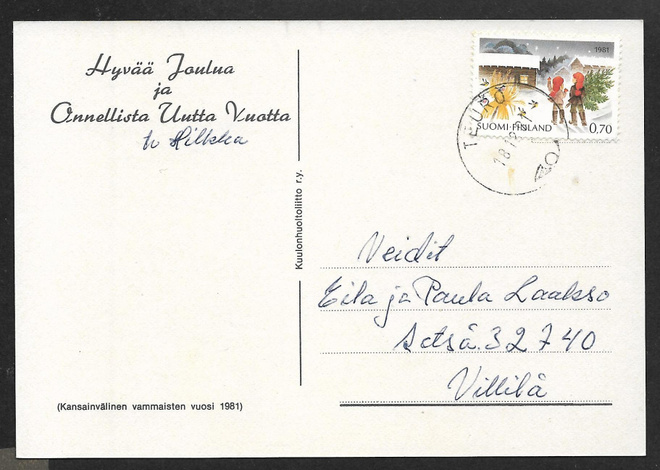 Hyvää Joulua
ja
Onnellista Uutta Vuotta
Hilkka
Kuulonhuoltoliitto r.y.
(Kansainvälinen vammaisten vuosi 1981)
1981
SUOMI-FINLAND 0,70
Neidit
Eila ja Paula Laakso
32740